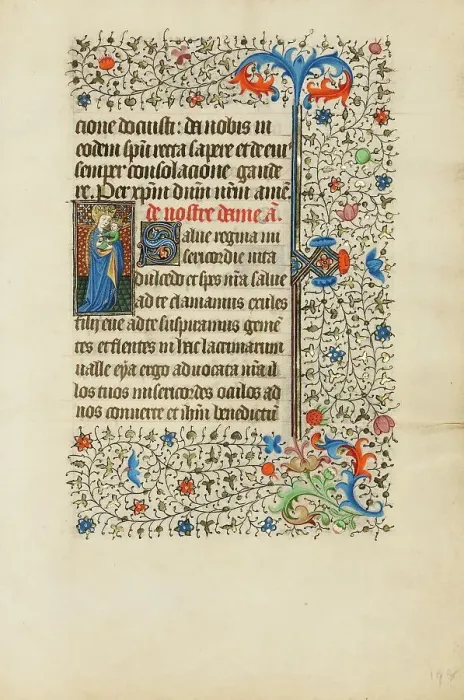 cione docuisti: da nobis in
eodem spũ recta sapere et de eiꝰ
semper consolacione gaude
re. Per xp̃m dñm nr̃m amẽ.
de nostre dame ã.
Salue regina mi
sericordie uita
dulcedo et spes nr̃a salue
ad te clamamus exules
filij eue ad te suspiramus gemẽ
tes et flentes in hac lacrimarum
ualle eya ergo aduocata nr̃a il
los tuos misericordes oculos ad
nos conuerte et ihm̃ benedictũ
198